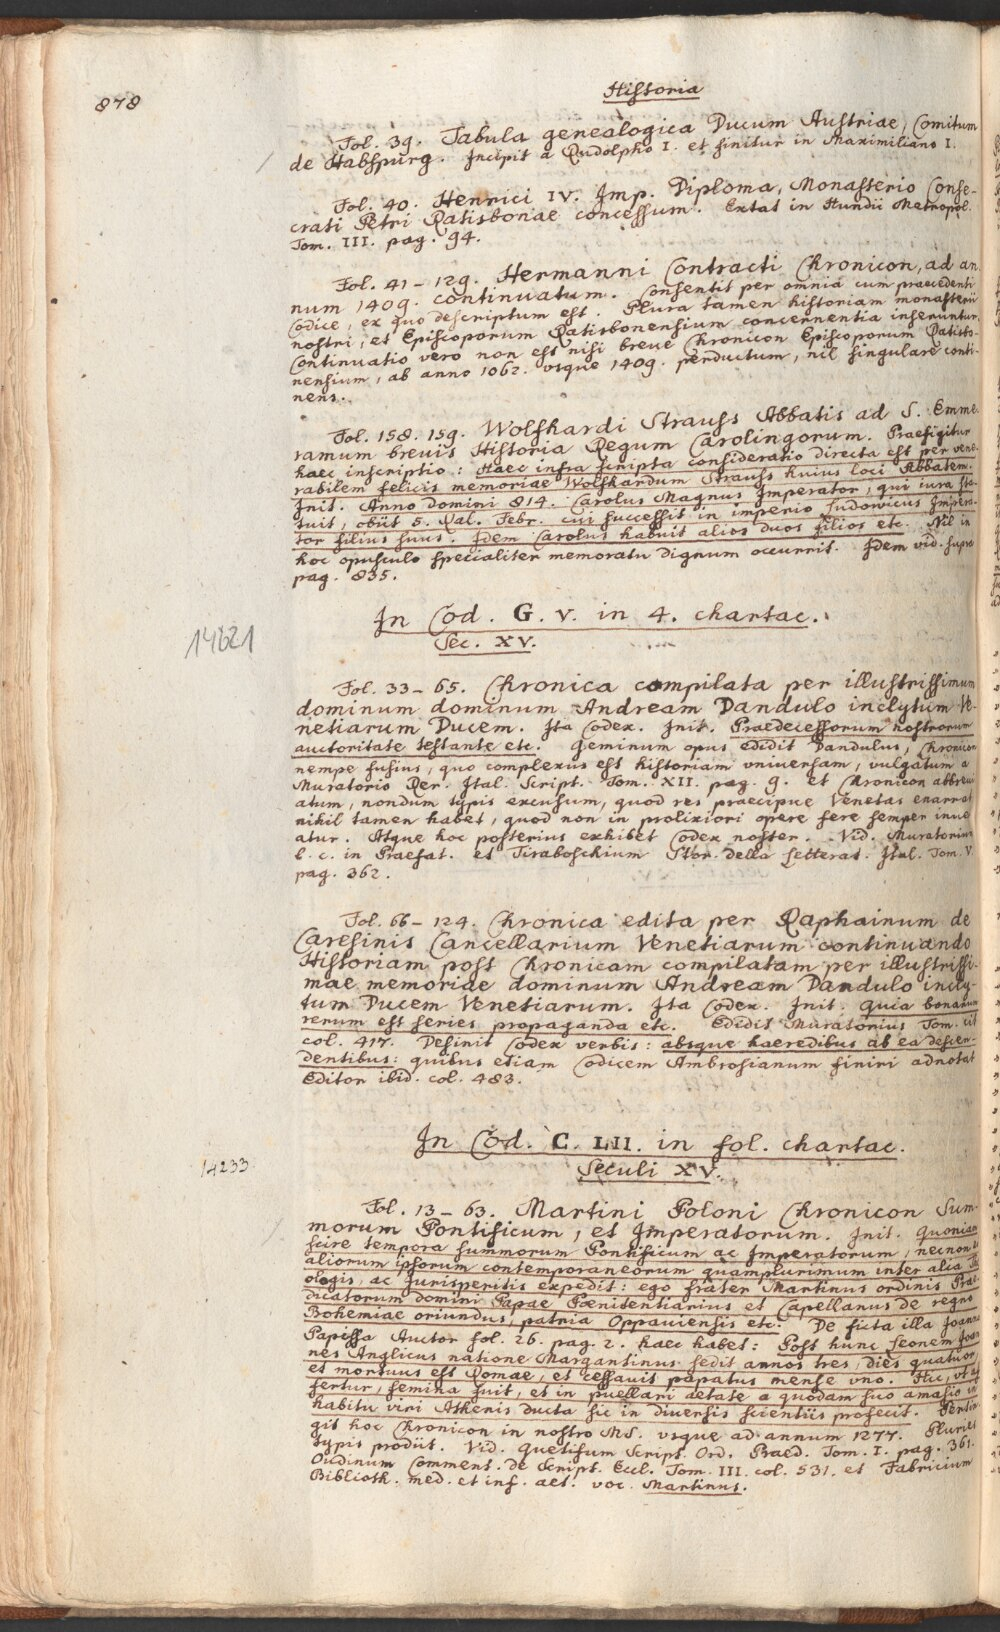 878
Historia
Fol. 39. Tabula genealogica Ducum Austriae, Comitum
de Habspurg. Incipit a Rudolpho I. et finitur in Maximiliano I.
Fol. 40. Henrici IV. Imp. Diploma, Monasterio Conse-
crati Petri Ratisbonae concessum. Extat in Hundii Metropol.
Tom. III. pag. 94.
Fol. 41-129. Hermanni Contracti Chronicon, ad an
num 1409. continuatum. Consentit per omnia cum praecedenti
Codice, ex quo descriptum est. Plura tamen historiam monasterii
nostri, et Episcoporum Ratisbonensium concernentia inseruntur.
Continuatio vero non est nisi breve Chronicon Episcoporum Ratisbo-
nensium, ab anno 1062. usque 1409. perductum, nil singulare conti-
nens.
Fol. 158. 159. Wolfhardi Strauss Abbatis ad S. Emme
ramum brevis Historia Regum Carolingorum. Praefigitur
haec inscriptio: Haec infra scripta consideratio directa est per vene-
rabilem felicis memoriae Wolfhardum Strauss huius loci Abbatem.
Init. Anno domini 814. Carolus Magnus Imperator, qui iura sta-
tuit, obiit 5. Kal. Febr. cui successit in imperio Ludovicus Impera-
tor filius suus. Idem Carolus habuit alios duos filios etc. Nil in
hoc opusculo specialiter memoratu dignum occurrit. Idem vid. supra
pag. 835.
In Cod. G. V. in 4. chartac.
Sec. XV.
14621
Fol. 33-65. Chronica compilata per illustrissimum
dominum dominum Andream Dandulo inclytum Ve-
netiarum Ducem. Ita Codex. Init. Praedecessorum nostrorum
auctoritate testante etc. Geminum opus edidit Dandulus, Chronicon
nempe fusius, quo complexus est historiam universam, vulgatum a
Muratorio Rer. Ital. Script. Tom. XII. pag. 9. et Chronicon abbrevi
atum, nondum typis excusum, quod res praecipue Venetas enarrat
nihil tamen habet, quod non in prolixiori opere fere semper inve
atur. Atque hoc posterius exhibet Codex noster. Vid. Muratorium
l. c. in Praefat. et Tiraboschium Stor. della Letterat. Ital. Tom. V.
pag. 362.
Fol. 66-124. Chronica edita per Raphainum de
Caresinis Cancellarium Venetiarum continuando
Historiam post Chronicam compilatam per illustrissi-
mae memoriae dominum Andream Dandulo incly-
tum Ducem Venetiarum. Ita Codex. Init. quia bonarum
rerum est series propaganda etc. Edidit Muratorius Tom. cit
col. 417. Desinit Codex verbis: absque haeredibus ab ea descen-
dentibus: quibus etiam Codicem Ambrosianum finiri adnotat
Editor ibid. col. 483.
In Cod. C. LII. in fol. chartac.
Seculi XV.
14233
Fol. 13-63. Martini Poloni Chronicon Sum-
morum Pontificum, et Imperatorum. Init. Quoniam
scire tempora summorum Pontificum ac Imperatorum, necnon et
aliorum ipsorum contemporaneorum quamplurimum inter alia The
ologis, ac Jurisperitis expedit: ego frater Martinus ordinis Prae-
dicatorum domini Papae Poenitentiarius et Capellanus de regno
Bohemiae oriundus, patria Oppaviensis etc. De ficta illa Joanna
Papissa Auctor fol. 26. pag. 2. haec habet: Post hunc Leonem Joan
nes Anglicus natione Margantinus sedit annos tres, dies quatuor,
et mortuus est Romae, et cessavit papatus mense uno. Hic, ut as
fertur, femina fuit, et in puellari aetate a quodam suo amasio in
habitu viri Athenis ducta sic in diversis scientiis profecit. Pertin
git hoc Chronicon in nostro MS. usque ad annum 1277. Pluries
typis prodiit. Vid. Quetifum Script. Ord. Praed. Tom. I. pag. 361.
Oudinum Comment. de Script. Eccl. Tom. III. col. 531. et Fabricium
Biblioth. med. et inf. aet. voc. Martinus.